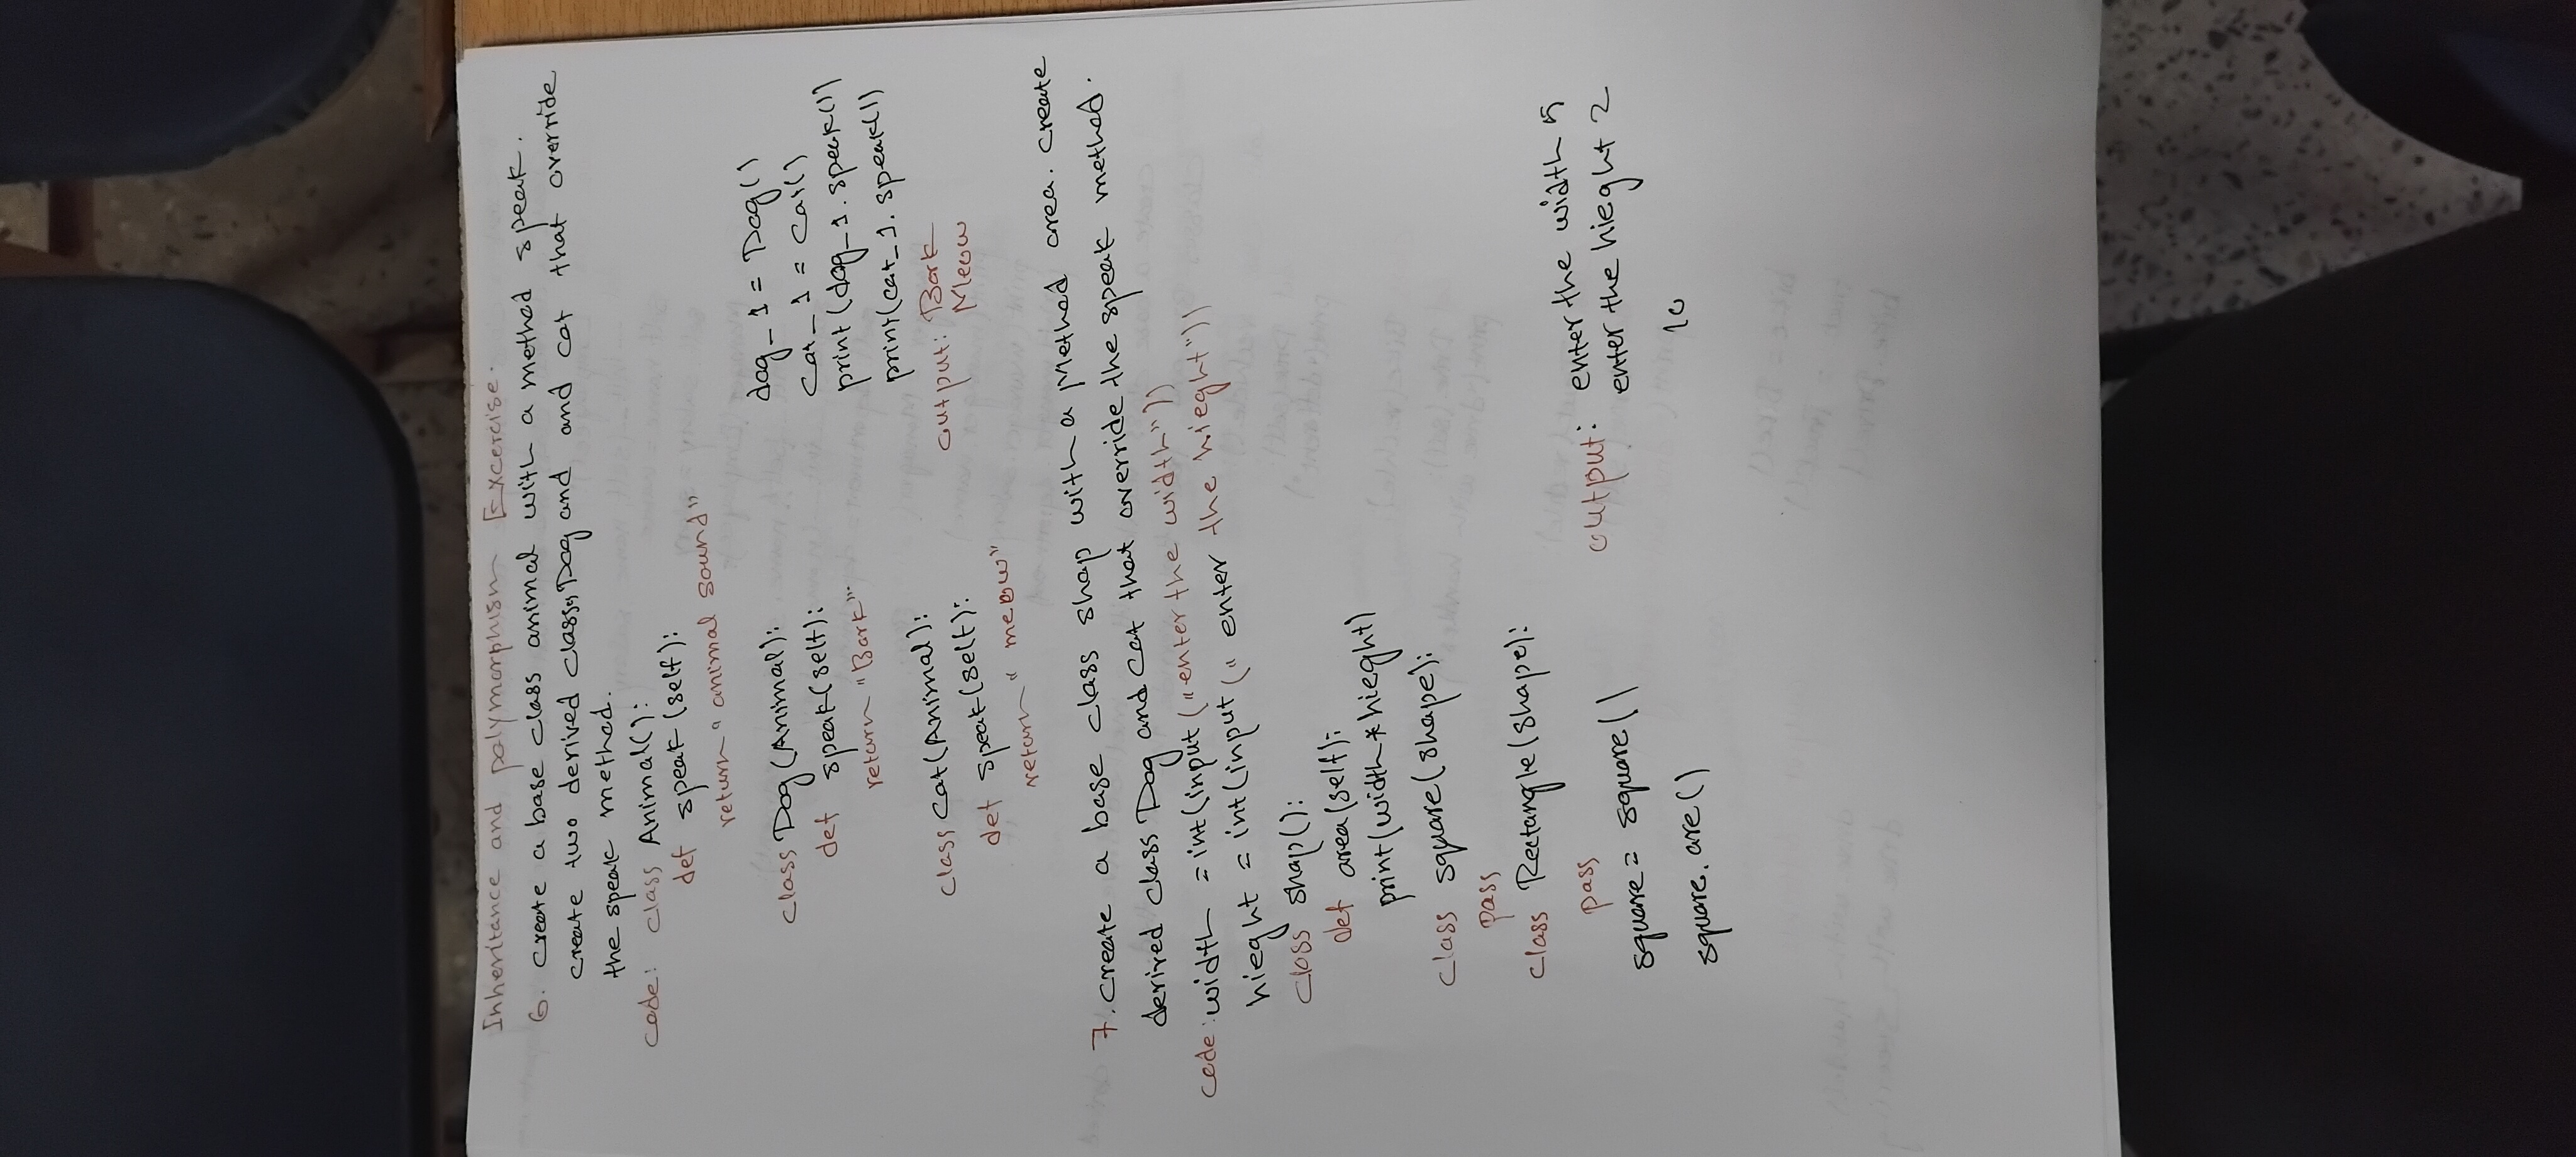 Inheritance and polymorphism Excercise.
6. create a base class animal with a method speak.
create two derived classy Dog and and cat that override
the speak method.
code: class Animal():
def speak (self):
return "animal sound"
class Dog (Animal):
def speak(self):
return "Bark"
class Cat(Animal):
def speak(self):
return "meow"
dog_1 = Dog()
cat_1 = Cat()
print (dog_1.speak())
print(cat_1.speak())
output: Bark
Meow
7. create a base class shap with a Method area. create
derived class Dog and cat that override the speak method.
code: width = int(input("enter the width"))
hieght = int(input(" enter the hieght"))
class shap():
def area(self):
print(width*hieght)
class square(shape):
pass
class Rectangle(shape):
pass
square = square()
square.are()
output: enter the width 5
enter the hieght 2
10